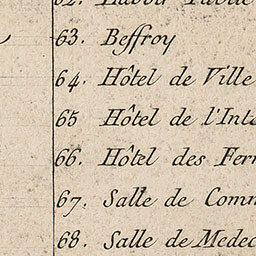 63. Beffroy
64. Hôtel de Ville
65 Hôtel de l'Int
66. Hôtel des Fer
67. Salle de Com
68. Salle de Medec